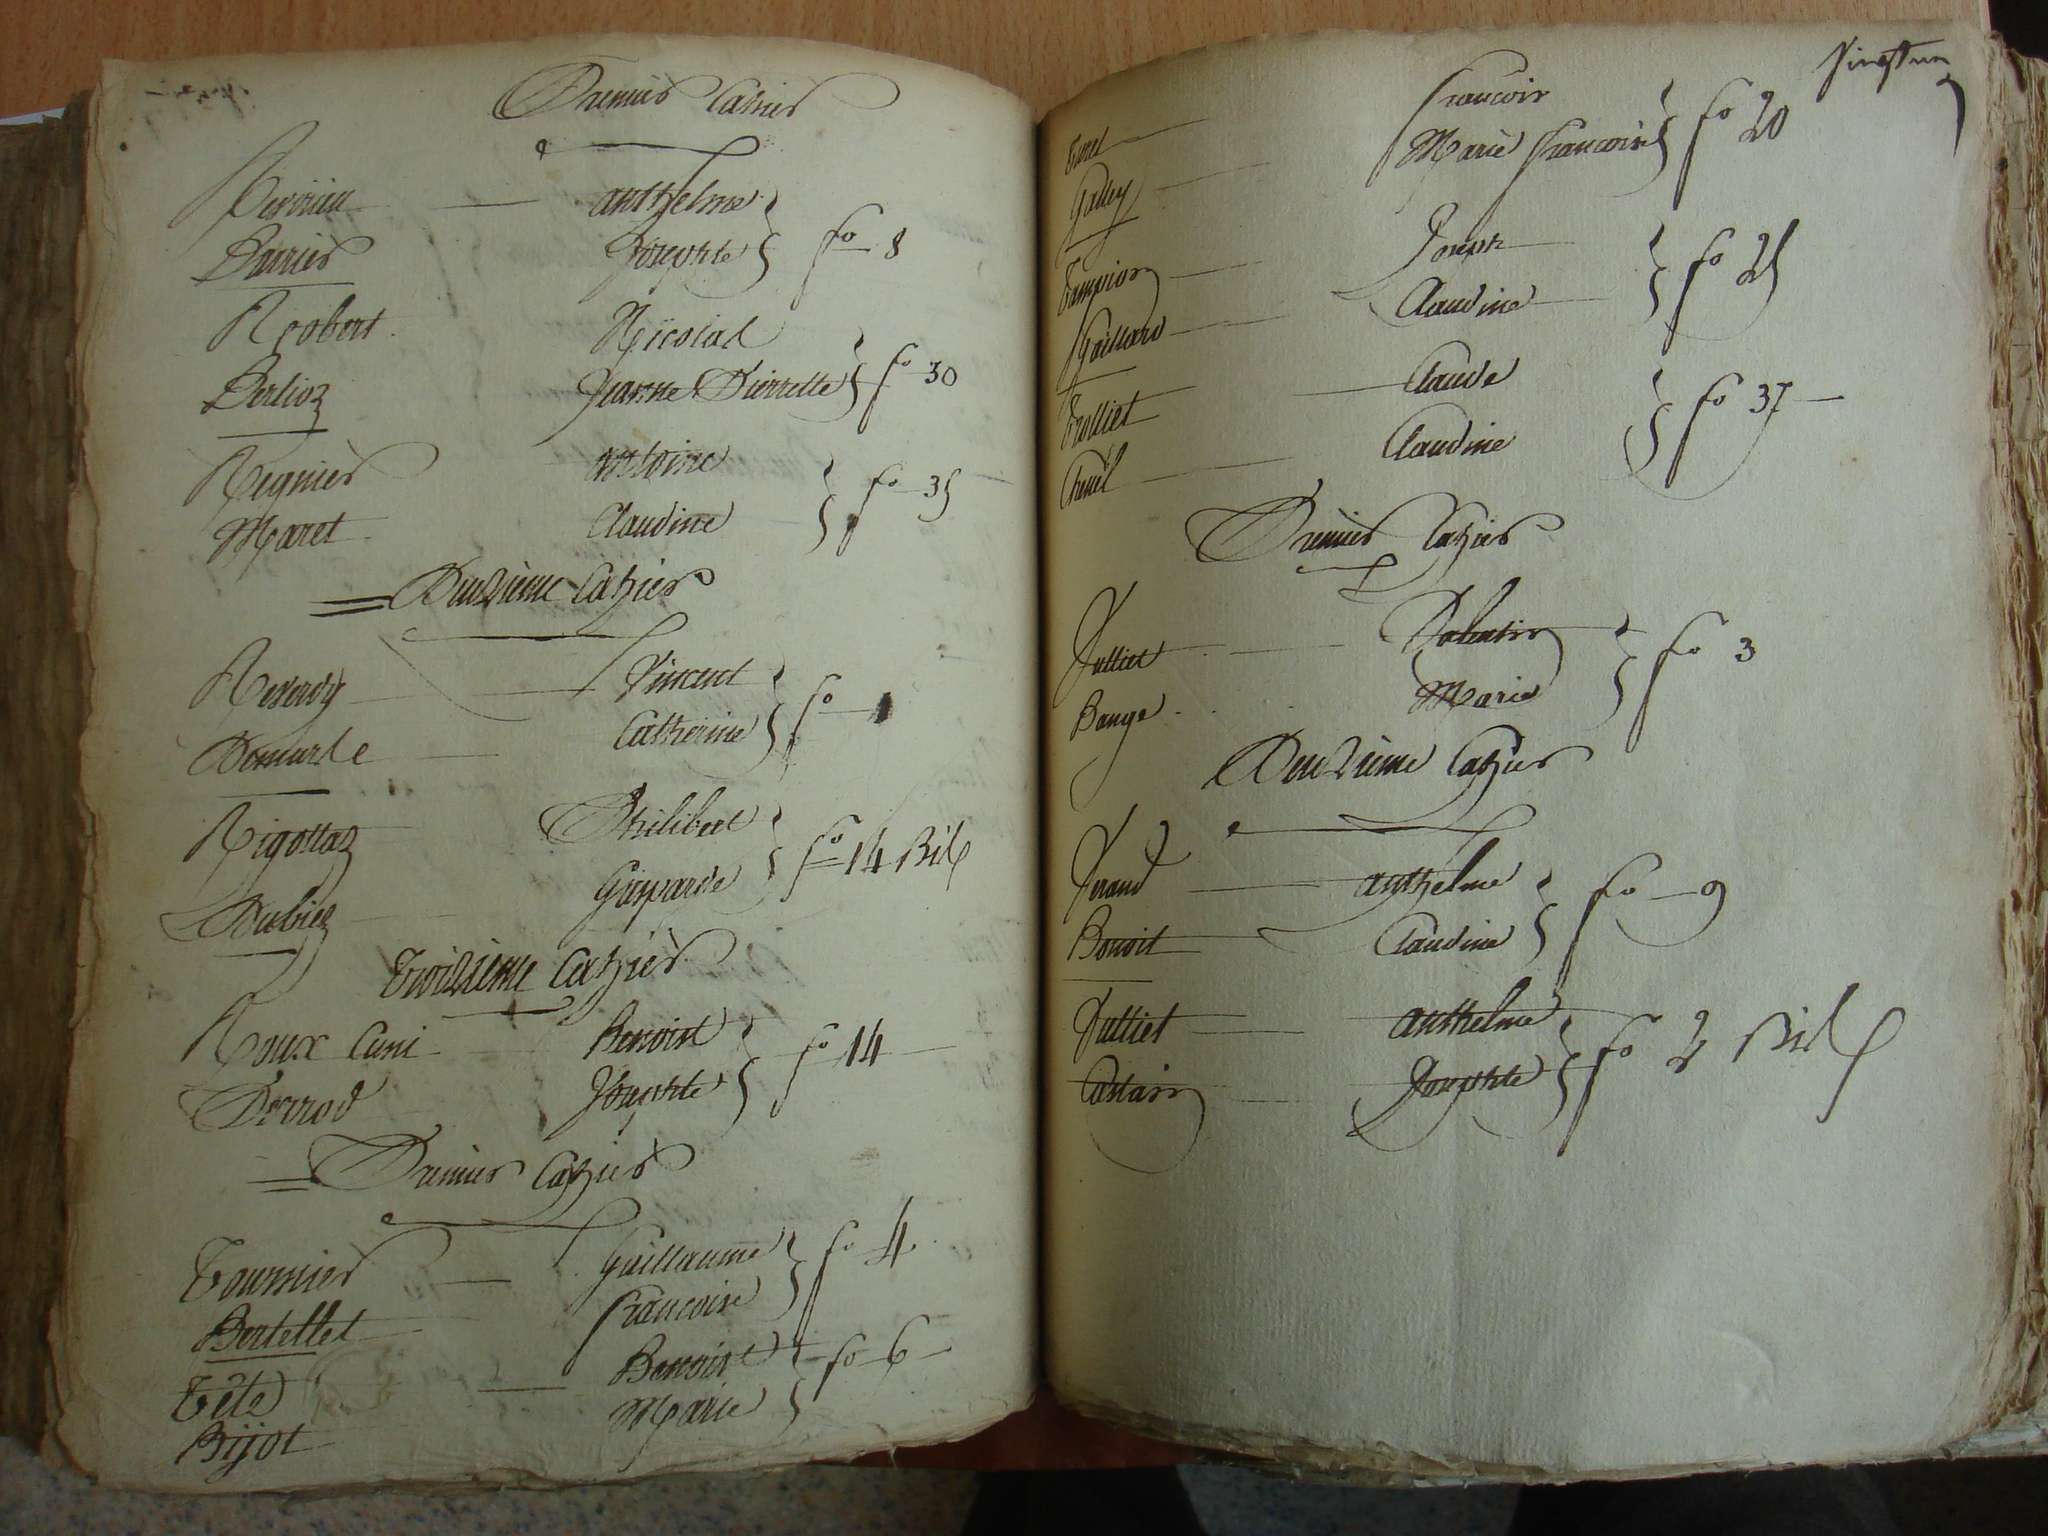 Premier Cahier
anthelme
Barrier Josephte fo 8
Robert Nicolas
Berlioz Jeanne Pierrette fo 30
Regnier antoine
Maret Claudine fo 35
Deuxieme Cahier
Vincent
Catherine fo
Philibert
Dubiez Gasparde fo 14 Bis
Troizieme Cahier
Roux Cuni Benoist
Perrod Josephte fo 14
Premier Cahier
Tournier Guillaume
Bertellet Francoise fo 4
Tête Benoist
Bijot Marie fo 6
Vingt un
Francois
Galley Marie Francoise fo 20
Tampion Joseph
Gaillard Claudine fo 25
Trolliet Claude
Claudine fo 37
Premier Cahier
Vulliet
Bauge Marie fo 3
Deuxieme Cahier
anthelme
Bonoit Claudine fo 9
Vulliet anthelme
Castain Josephte fo 2 Bis